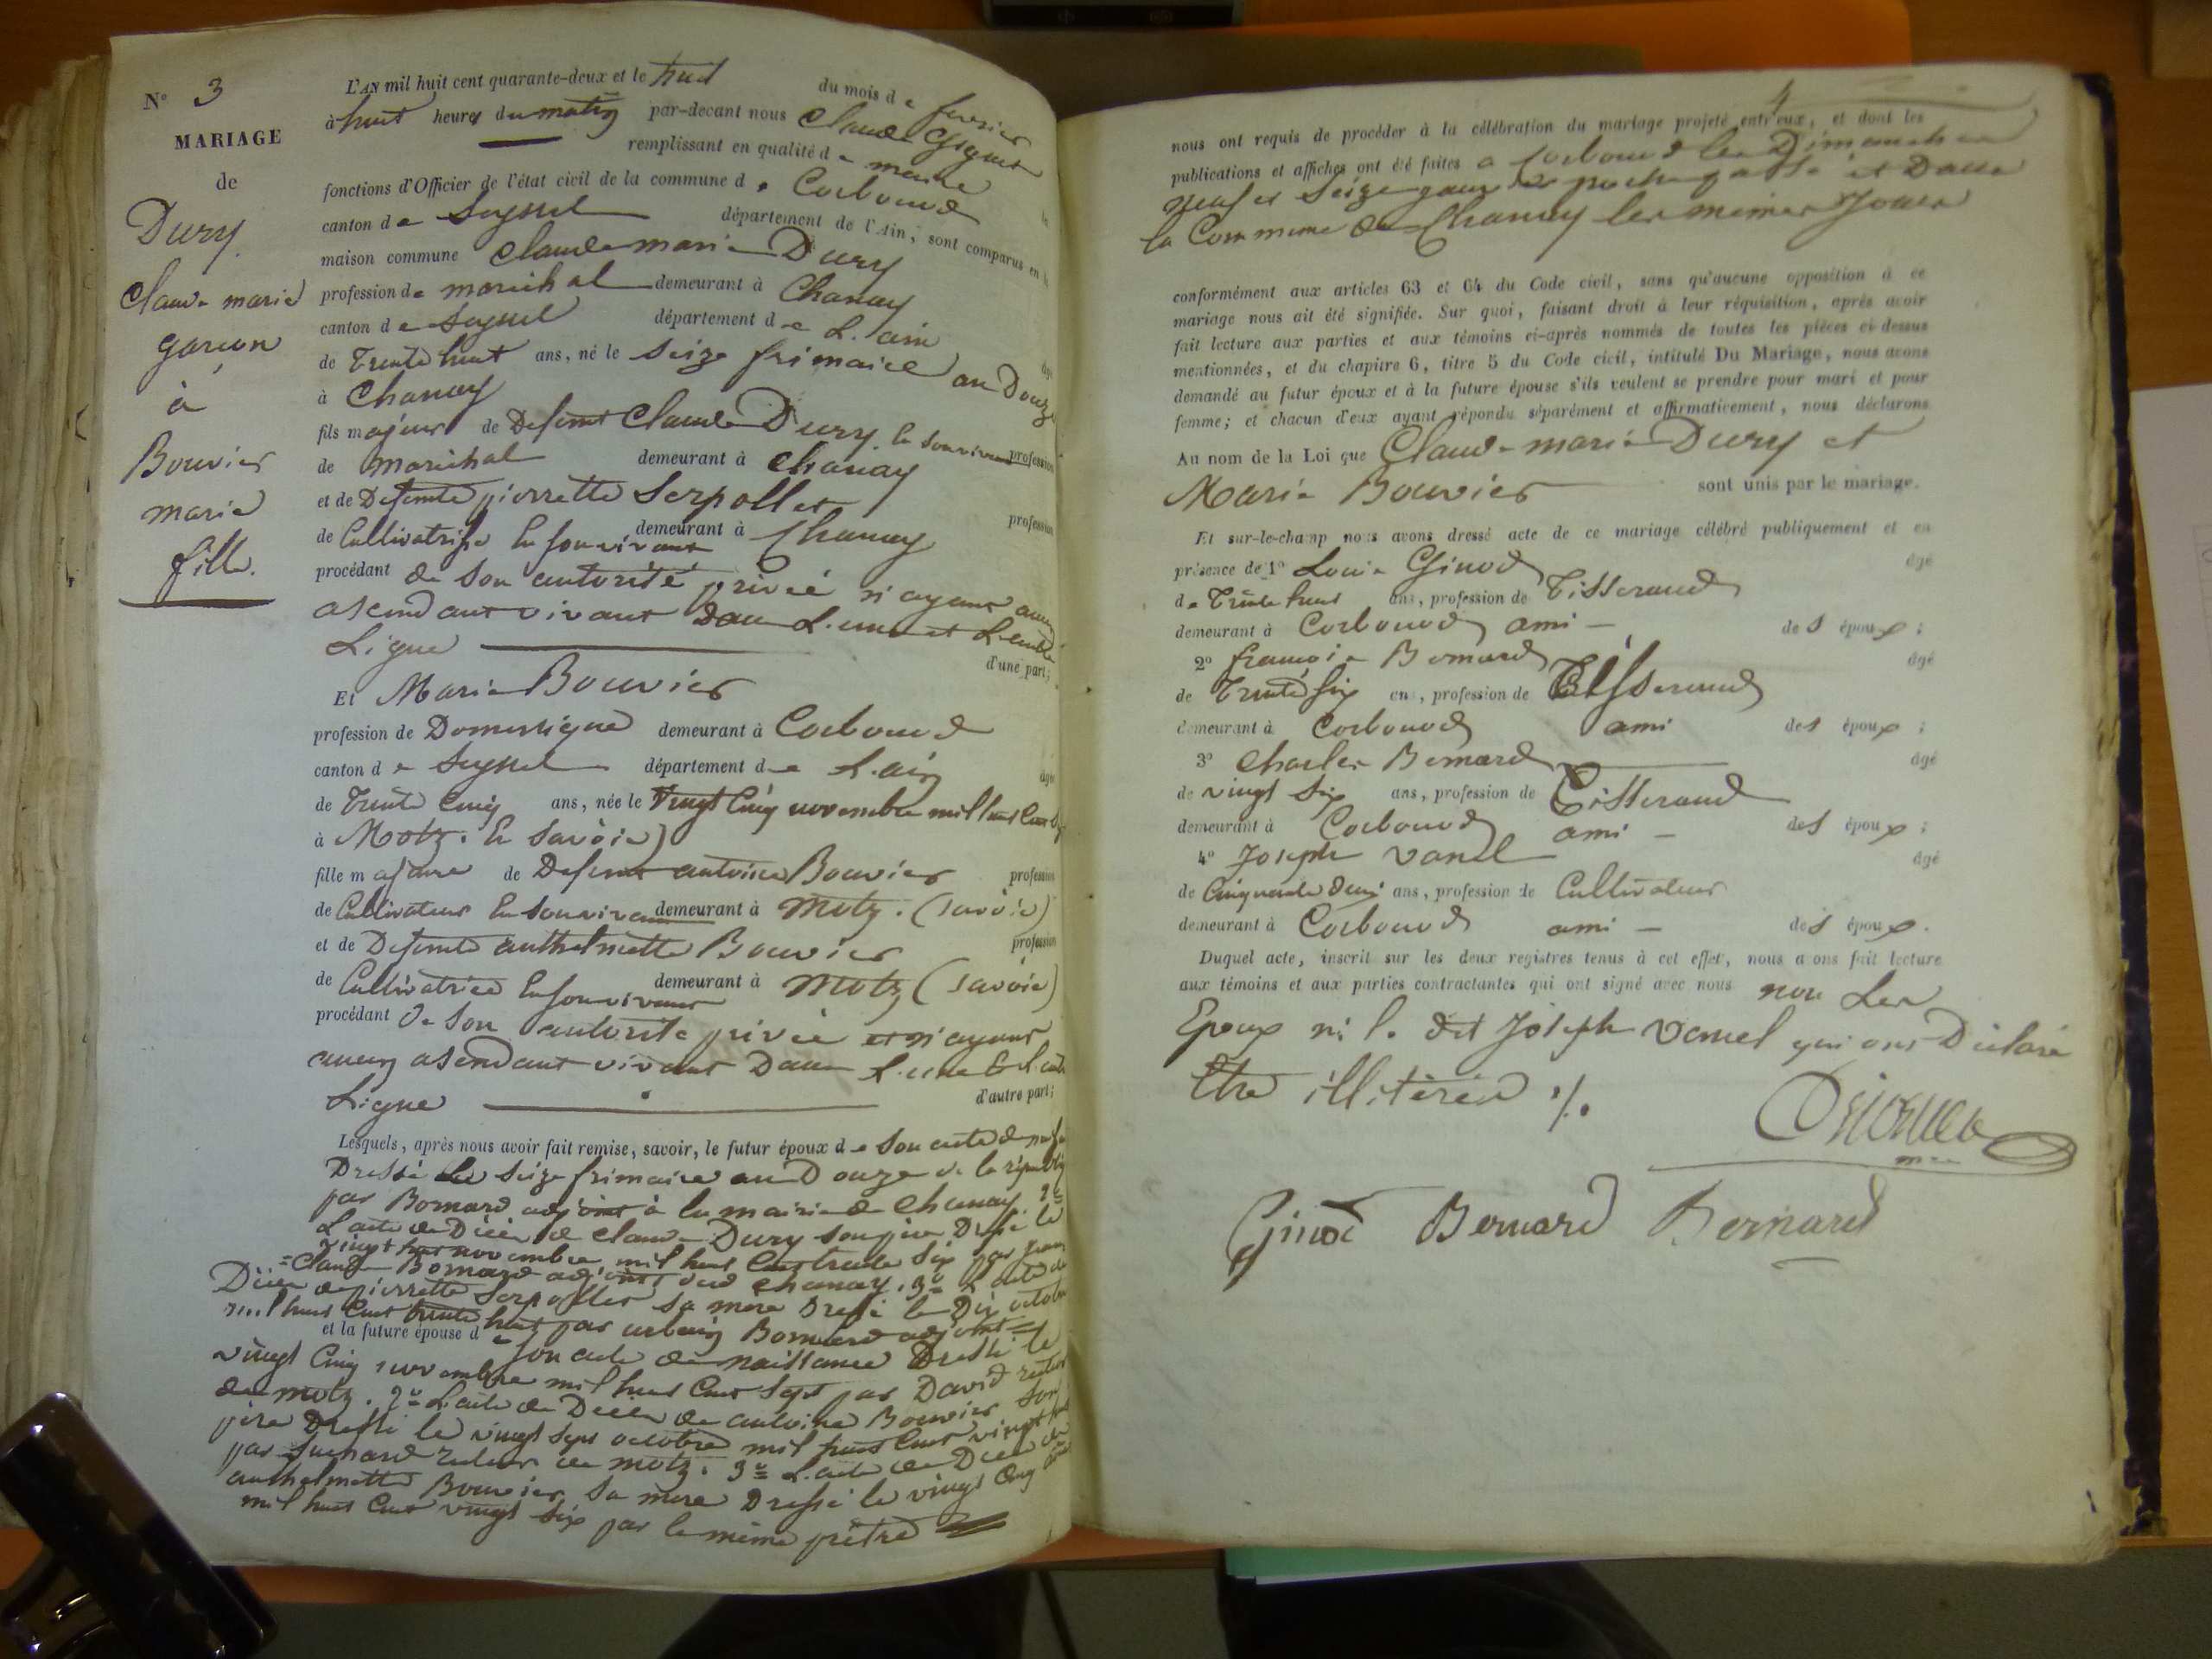 N° 3
MARIAGE
de
Dury
Claude marie
garçon
à
Bouvier
marie
fille.
L'AN mil huit cent quarante-deux et le huit du mois de fevrier
à huit heures du matin par-devant nous Claude
remplissant en qualité de maire
fonctions d'Officier de l'état civil de la commune de Corbonod
canton de Seyssel département de l'Ain, sont comparus en la
maison commune Claude marie Dury
profession de marichal demeurant à Chanay
canton de Seyssel département de L'ain
de Trente huit ans, né le seize frimaire an Douze
à Chanay
fils majeur de Defunt Claude Dury En son vivant profession
de marichal demeurant à Chanay
et de Defunte pierrette Serpollet profession
de Cultivatrise En son vivant demeurant à Chanay
procédant de son autorité privée n'ayant aucun
asendant vivant Dans L'une et L'autre
Ligne
d'une part;
Et Marie Bouvier
profession de Domestique demeurant à Corbonod
canton de Seyssel département de L'ain âgée
de Trente Cinq ans, née le Vingt Cinq novembre mil huit Cent
à Motz. En Savoie)
fille majeure de Defunt antoine Bouvier profession
de Cultivateur En son vivant demeurant à Motz. (Savoie)
et de Defunte anthelmette Bouvier profession
de Cultivatrice En son vivant demeurant à Motz (Savoie)
procédant De Son autorité privée et n'ayant
aucun asendant vivant Dans L'une & L'autre
Ligne
d'autre part;
Lesquels, après nous avoir fait remise, savoir, le futur époux de son acte de
Dressé Le seize frimaire an Douze de la
par Bornard adjoint à la mairie de Chanay. 2°
L'acte de Décès de Claude Dury son père Dressé le
vingt huit novembre mil huit Cent trente six par
=Claude Bornard adjoint dud Chanay. 3° L'acte de
Décès de pierrette Serpollet sa mère Dressé le Dix octobre
mil huit Cent trente huit par urbain Bornard adjoint
et la future épouse de son acte de naissance Dressé le
vingt Cinq novembre mil huit Cent sept par David recteur
de motz. 2° L'acte de Décès de antoine Bouvier son
père Dressé le vingt sept octobre mil huit Cent vingt
par Suchard recteur de motz. 3° L'acte de Décès de
anthelmette Bouvier sa mère Dressé le vingt Cinq
mil huit Cent vingt six par le même prêtre
4
nous ont requis de procéder à la célébration du mariage projeté entr'eux, et dont les
publications et affiches ont été faites a Corbonod les Dimanches
neuf et seize janvier proche passé et Dans
la Commune de Chanay les mêmes Jours
conformément aux articles 63 et 64 du Code civil, sans qu'aucune opposition à ce
mariage nous ait été signifiée. Sur quoi, faisant droit à leur réquisition, après avoir
fait lecture aux parties et aux témoins ci-après nommés de toutes les pièces ci-dessus
mentionnées, et du chapitre 6, titre 5 du Code civil, intitulé Du Mariage, nous avons
demandé au futur époux et à la future épouse s'ils veulent se prendre pour mari et pour
femme; et chacun d'eux ayant répondu séparément et affirmativement, nous déclarons
Au nom de la Loi que Claude marie Dury et
Marie Bouvier sont unis par le mariage.
Et sur-le-champ nous avons dressé acte de ce mariage célébré publiquement et en
présence de 1° Louis Ginod âgé
de Trente huit ans, profession de Tisserand
demeurant à Corbonod ami des époux;
2° françois Bernard âgé
de Trente Six ans, profession de Tisserand
demeurant à Corbonod ami des époux;
3° Charles Bernard âgé
de vingt Six ans, profession de Tisserand
demeurant à Corbonod ami des époux;
4° Joseph Vanel âgé
de Cinquante Deux ans, profession de Cultivateur
demeurant à Corbonod ami des époux.
Duquel acte, inscrit sur les deux registres tenus à cet effet, nous avons fait lecture
aux témoins et aux parties contractantes qui ont signé avec nous non Les
Epoux ni le dit Joseph Vanel qui ont Déclaré
Etre illitérés ./.
Ginod Bernard Bernard